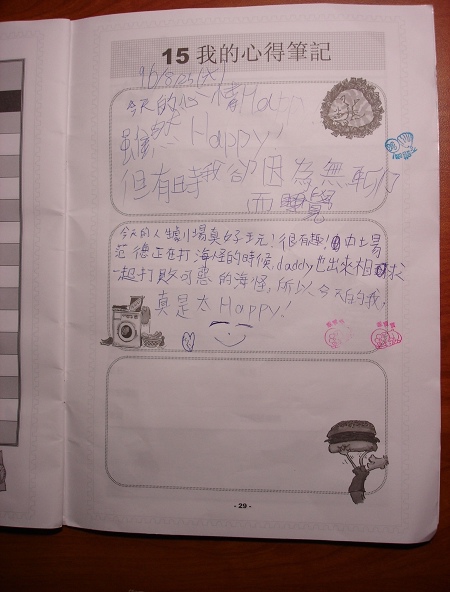 15 我的心得筆記
96/8/25(六)
今天的心情Happy
雖然 Happy!
但有時我卻因為無聊
而睡覺
今天的人 小場真好玩!很有趣!由
范德正在打海怪的時候,daddy也出來相求
一起打敗可惡的海怪,所以,今天的我,
真是太Happy!
- 29 -